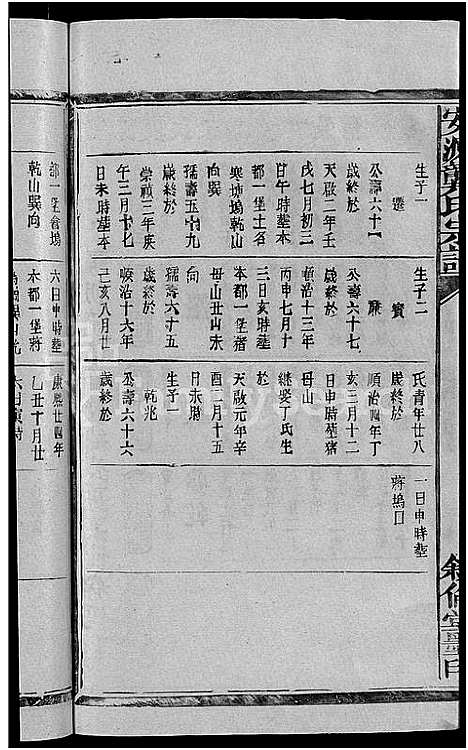 生子一
遷
公壽六十一
歲終於
天啟二年壬
戌七月初三
日午時塟本
都一堡土名
寒塘塢乾山
巽向
孺壽五十九
歲終於
崇禎三年庚
午三月十七
日未時塟本
都一堡
塢
乾山巽向
生子二
賓
公壽六十七
歲終於
順治十三年
丙申七月十
三日亥時塟
本都一堡猪
母山丑山未
向
孺壽六十五
歲終於
順治十六年
己亥八月廿
六日申時塟
本都一堡蔣
氏青年廿八
歲終於
順治四年丁
亥三月十二
日申時塟猪
母山
繼娶丁氏生
於
天啟元年辛
酉二月十五
日未時
生子一
乾兆
公壽六十六
歲終於
康熙廿四年
乙丑十月廿
一日申時塟
蔣塢口